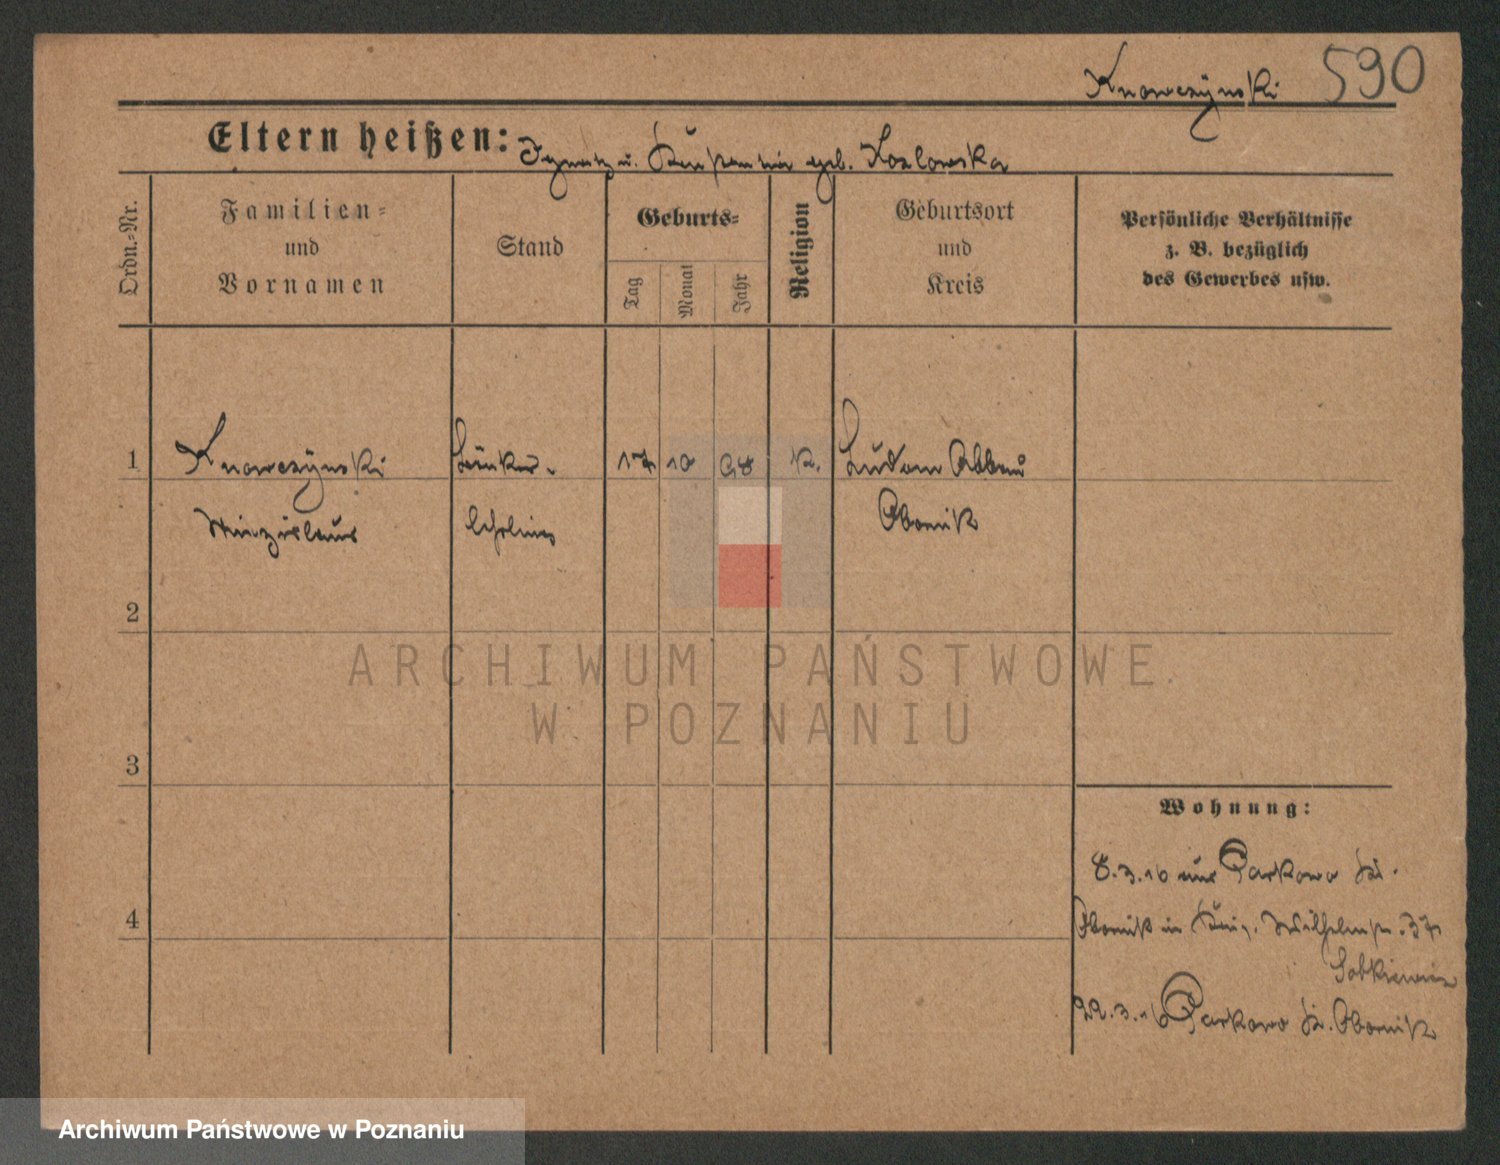 Knowczynski 590
Eltern heißen: Ignatz u. Konstantia geb. Kozlowska
Ordn.-Nr.
Familien-
und
Vornamen
Stand
Geburts-
Tag
Monat
Jahr
Religion
Geburtsort
und
Kreis
Persönliche Verhältnisse
z. B. bezüglich
des Gewerbes usw.
1 Knowczynski 17 10 98 k. Ludom Abbau
lehrling Obornik
2
ARCHIWUM PAŃSTWOWE
W POZNANIU
3
Wohnung:
8.3.16 aus Parkowo Kr.
4 Obornik in Wilhelmstr. 37
22.3.16 Parkowo Kr. Obornik
Archiwum Państwowe w Poznaniu